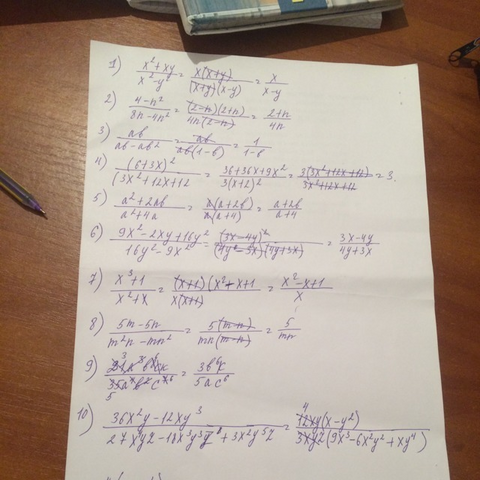 1) x²+xy / x²-y² = x(x+y) / (x+y)(x-y) = x / x-y
2) 4-n² / 8n-4n² = (2-n)(2+n) / 4n(2-n) = 2+n / 4n
3) ab / ab-ab² = ab / ab(1-b) = 1 / 1-b
4) (6+3x)² / (3x²+12x+12 = 36+36x+9x² / 3(x+2)² = 3(3x²+12x+12) / 3x²+12x+12 = 3.
5) a²+2ab / a²+4a = a(a+2b) / a(a+4) = a+2b / a+4
6) 9x²-2xy+16y² / 16y²-9x² = (3x-4y)² / (4y-3x)(4y+3x) = 3x-4y / 4y+3x
7) x³+1 / x²+x = (x+1)(x²-x+1) / x(x+1) = x²-x+1 / x
8) 5m-5n / m²n-mn² = 5(m-n) / mn(m-n) = 5 / mn
9) = 3b⁶c / 5ac⁶
10) 36x²y-12xy³ / = 4 12xy(x-y²) / 3xyz(9x³-6x²y²+xy⁴)